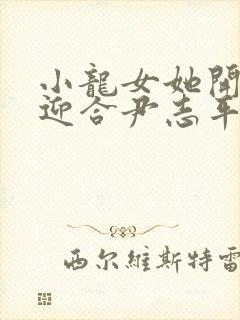 小龍女她開
迎合尹志平
西尔維斯特雷